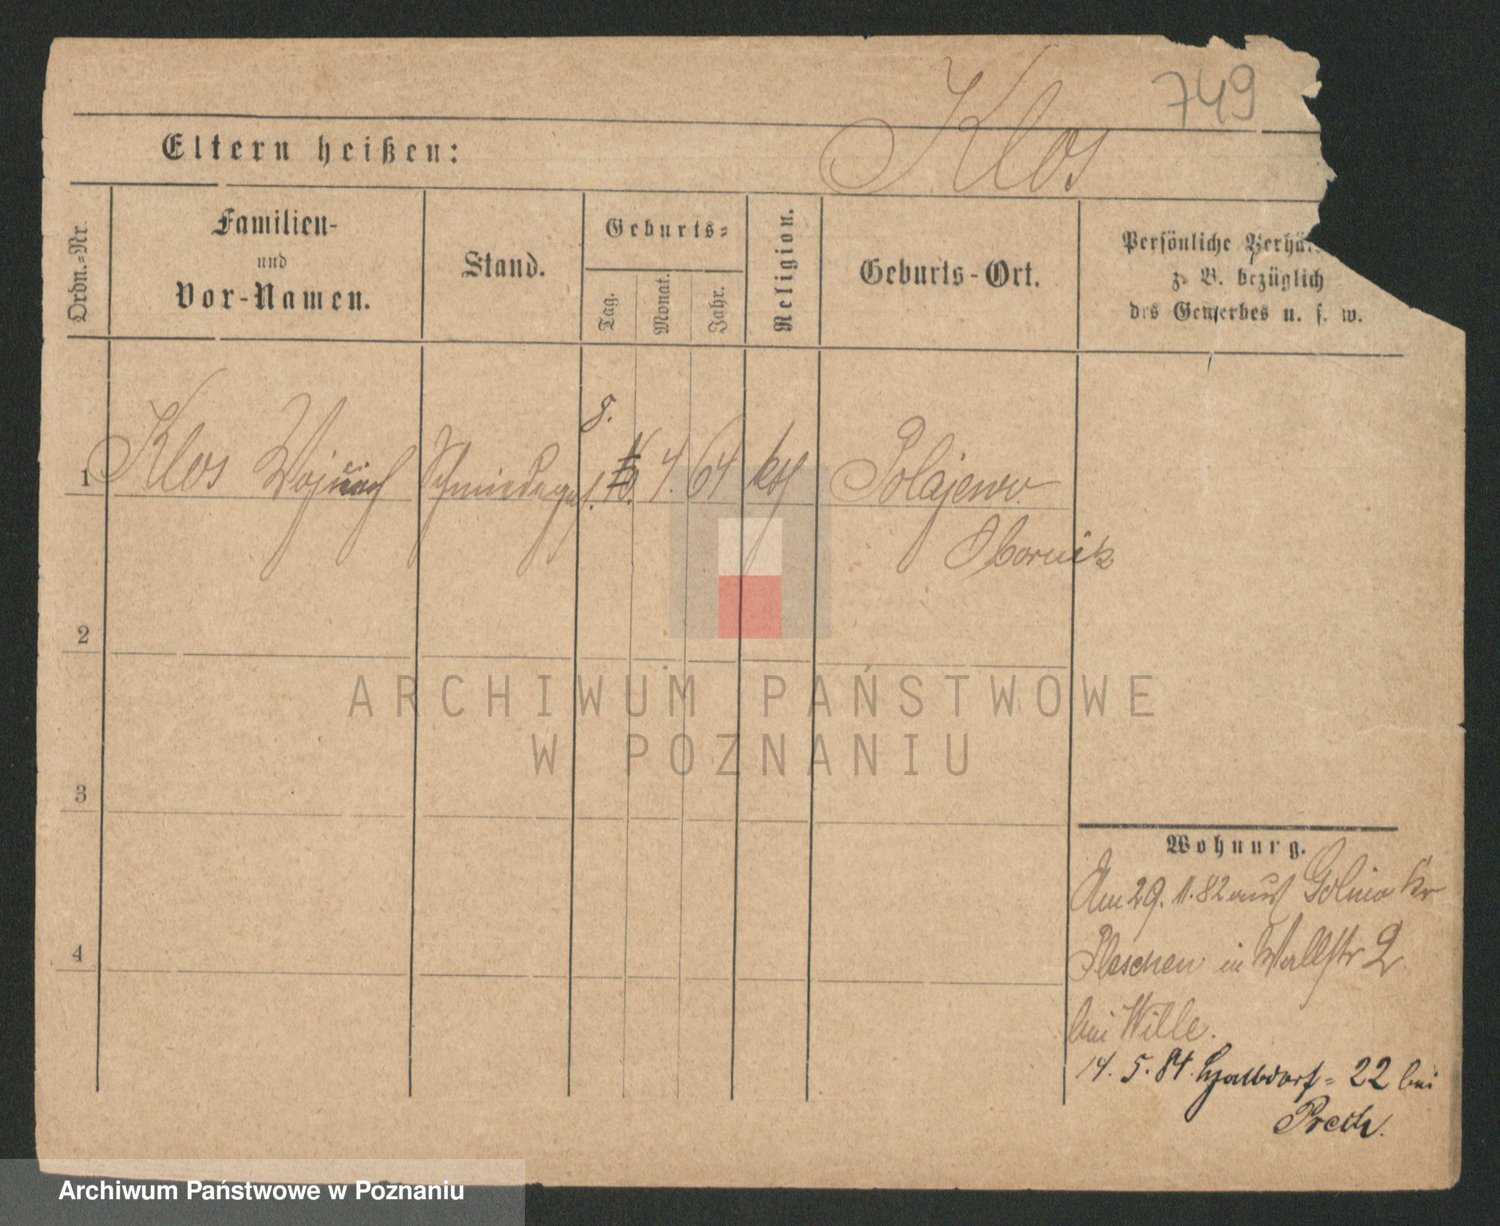 749
Klos
Eltern heißen:
Ordn.-Nr.
Familien-
und
Vor-Namen.
Stand.
Geburts-
Tag.
Monat.
Jahr.
Religion.
Geburts-Ort.
Persönliche Verhä
z. B. bezüglich
des Gewerbes u. s. w.
8.
1 Klos Schmiedeges. 4. 64 kth Polajewo
Obornik
2
3
4
Wohnung.
Am 29. 11. 82 aus Golina Kr
Pleschen in Wallstr 2
bei Wille.
14. 5. 84. Halbdorf- 22 bei
ARCHIWUM PAŃSTWOWE
W POZNANIU
Archiwum Państwowe w Poznaniu